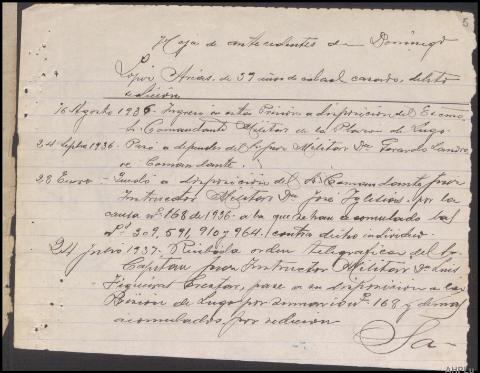 5
Hoja de antecedentes de Domingo
López Arias, de 39 años de edad casado, delito
sedición
16 Agosto 1936. Ingresó en esta Prisión a disposición del Excmo
Sr. Comandante Militar de la Plaza de Lugo.
24 Septbe 1936. Pasó a depender del Militar Dn Gerardo
Comandante.
28 Enero - Quedó a disposición del Sr. Comandante Juez
Instructor Militar Dn José Iglesias, por la
causa nº 168 de 1936 a la que se han acumulado las
nºs 309, 591, 910 y 964, contra dicho individuo
24 Junio 1937. Recibida orden telegráfica del Sr.
Capitan Juez Instructor Militar Dn Luis
Figueiras, pase a su disposición a la
Prision de Lugo por sumario nº 168 y demas
acumulados por sedicion
Sa-
AHPLu